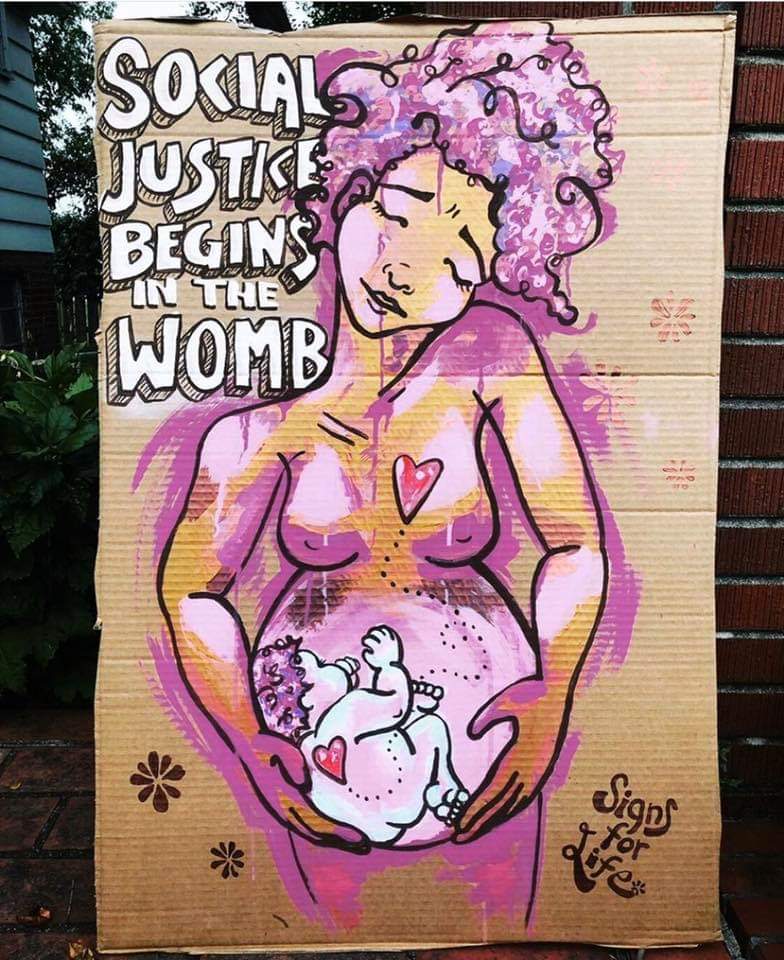 SOCIAL
JUSTICE
BEGINS
IN THE
WOMB
Signs
for
Life